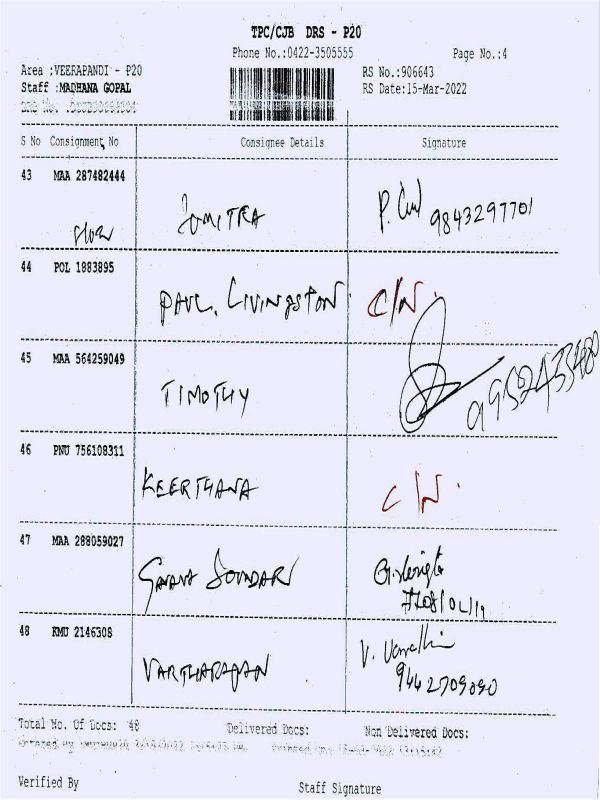 TPC/CJB DRS - P20
Phone No.:0422-3505555 Page No.:4
Area :VEERAPANDI - P20 RS No.:906643
Staff :MADHANA GOPAL RS Date:15-Mar-2022
S No Consignment No Consignee Details Signature
43 MAA 287482444
ZOMITRA P. 9843297701
44 POL 1983895
PAUL. LIVINGSTON C/N.
45 MAA 564259049
TIMOTHY
46 PNU 756108311
KEERTHANA C/N.
47 MAA 288059027
SOUNDARI
48 KMU 2146308
VARTHARAJAN V.
9442709090
Total No. Of Docs: 48 Delivered Docs: Non Delivered Docs:
Verified By Staff Signature